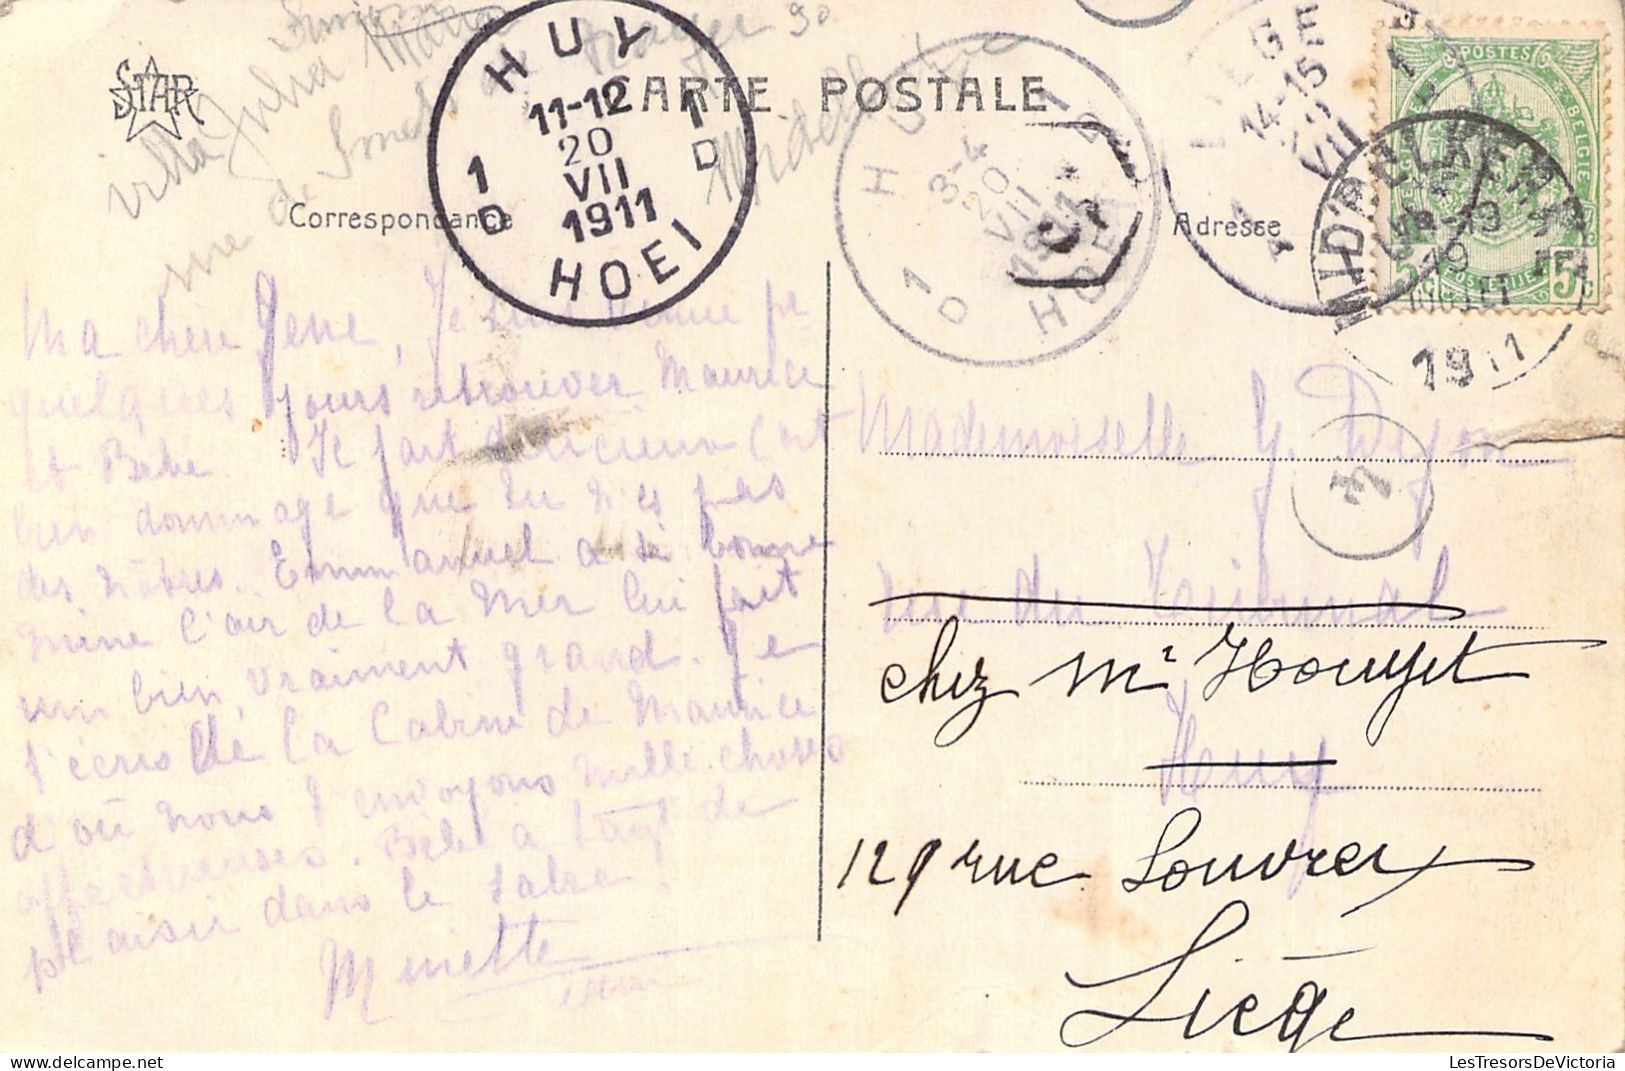 STAR
CARTE POSTALE
Correspondance
Adresse
villa Julia
rue de Smet de Nayer 90
Middelkerke
HUY
11-12
20
VII
1911
HOEI
1 D
1 D
HUY
3-4
20
VII
1911
HOEI
1 D
14-15
VII
MIDDELKERKE
19
JUILLET
1911
POSTES
BELGIQUE
BELGIE
POSTERIJEN
5c 5c
Ma chère Jene, Je suis venue pr
quelques jours retrouver Maurice
et Bébé. Il fait délicieux c'est
bien dommage que tu n'es pas
des nôtres. Emmanuel a si bonne
mine l'air de la mer lui fait
un bien vraiment grand. Je
t'écris de la Cabine de Maurice
d'où nous t'envoyons mille choses
affectueuses. Bébé a tant de
plaisir dans le sable!
Minette
Mademoiselle G. Dejon
rue du Tribunal
chez Mr Houyet
Huy
129 rue Louvrex
Liège
LesTresorsDeVictoria